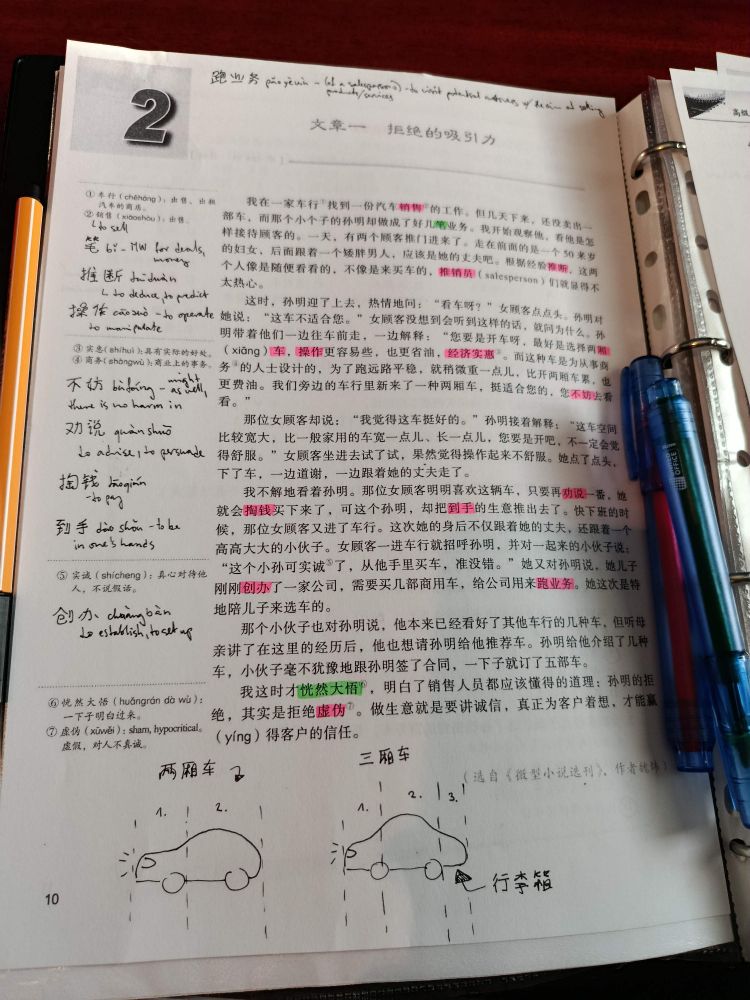 跑业务 pǎo yèwù - (of a salesperson) - to visit potential customers w/ the aim of selling
products/services
2
文章一 拒绝的吸引力
我在一家车行①找到一份汽车销售②的工作。但几天下来，还没卖出一
部车，而那个小个子的孙明却做成了好几笔业务。我开始观察他，看他是怎
样接待顾客的。一天，有两个顾客推门进来了。走在前面的是一个50来岁
的妇女，后面跟着一个矮胖男人，应该是她的丈夫吧。根据经验推断，这两
个人像是随便看看的，不像是来买车的，推销员(salesperson)们就显得不
太热心。
这时，孙明迎了上去，热情地问：“看车呀？”女顾客点点头。孙明对
她说：“这车不适合您。”女顾客没想到会听到这样的话，就问为什么。孙
明带着他们一边往车前走，一边解释：“您要是开车呀，最好是选择两厢
(xiāng)车，操作更容易些，也更省油，经济实惠③。而这种车是为从事商
务④的人士设计的，为了跑远路平稳，就稍微重一点儿，比开两厢车累，也
更费油。我们旁边的车行里新来了一种两厢车，挺适合您的，您不妨去看
看。”
那位女顾客却说：“我觉得这车挺好的。”孙明接着解释：“这车空间
比较宽大，比一般家用的车宽一点儿、长一点儿，您要是开吧，不一定会觉
得舒服。”女顾客坐进去试了试，果然觉得操作起来不舒服。她点了点头，
下了车，一边道谢，一边跟着她的丈夫走了。
我不解地看着孙明。那位女顾客明明喜欢这辆车，只要再劝说一番，她
就会掏钱买下来了，可这个孙明，却把到手的生意推出去了。快下班的时
候，那位女顾客又进了车行。这次她的身后不仅跟着她的丈夫，还跟着一个
高高大大的小伙子。女顾客一进车行就招呼孙明，并对一起来的小伙子说：
“这个小孙可实诚⑤了，从他手里买车，准没错。”她又对孙明说，她儿子
刚刚创办了一家公司，需要买几部商用车，给公司用来跑业务。她这次是特
地陪儿子来选车的。
那个小伙子也对孙明说，他本来已经看好了其他车行的几种车，但听母
亲讲了在这里的经历后，他也想请孙明给他推荐车。孙明给他介绍了几种
车，小伙子毫不犹豫地跟孙明签了合同，一下子就订了五部车。
我这时才恍然大悟⑥，明白了销售人员都应该懂得的道理：孙明的拒
绝，其实是拒绝虚伪⑦。做生意就是要讲诚信，真正为客户着想，才能赢
(yíng)得客户的信任。
（选自《微型小说选刊》，作者
①车行(chēháng)：出售、出租
汽车的商店。
②销售(xiāoshòu)：出售。
↳ to sell
笔 bǐ - MW for deals,
money
推断 tuīduàn
↳ to deduce, to predict
操作 cāozuò - to operate
to manipulate
③实惠(shíhuì)：具有实际的好处。
④商务(shāngwù)：商业上的事务。
不妨 bùfáng - might
as well,
there is no harm in
劝说 quànshuō
to advise, to persuade
掏钱 tāoqián
- to pay
到手 dào shǒu - to be
in one's hands
⑤实诚(shícheng)：真心对待他
人，不说假话。
创办 chuàngbàn
to establish, to set up
⑥恍然大悟(huǎngrán dà wù)：
一下子明白过来。
⑦虚伪(xūwěi)：sham, hypocritical。
虚假，对人不真诚。
两厢车
1. 2.
三厢车
1. 2. 3.
行李箱
10
高级